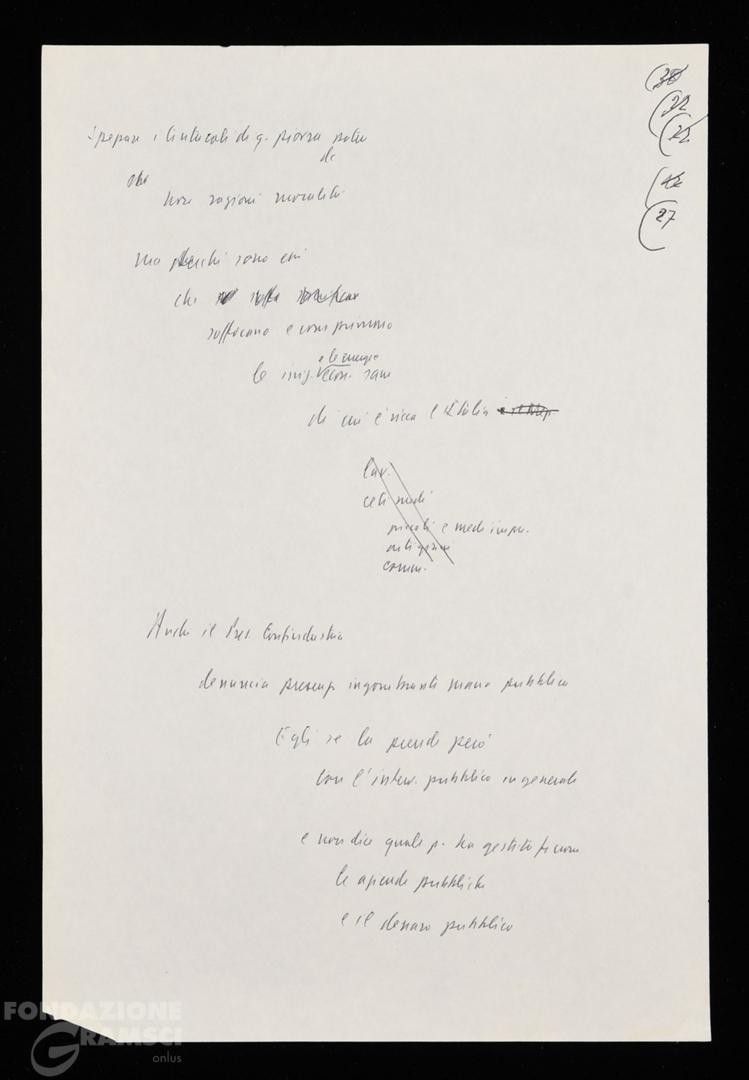 (38
(32
(22
(42
(27
i tentacoli di q. piovra
di
non ragioni moralisti
ma perché sono essi
che
soffocano e comprimono
e le energie
le econ. sane
di cui è ricca l'Italia
lav.
ceti medi
piccoli e medi impr.
artigiani
comm.
Anche il Pres. Confindustria
denuncia presenza ingombrante mano pubblica
Egli se la prende però
con l'interv. pubblico in generale
e non dice quale p. ha gestito finora
le aziende pubbliche
e il denaro pubblico
FONDAZIONE
GRAMSCI
onlus